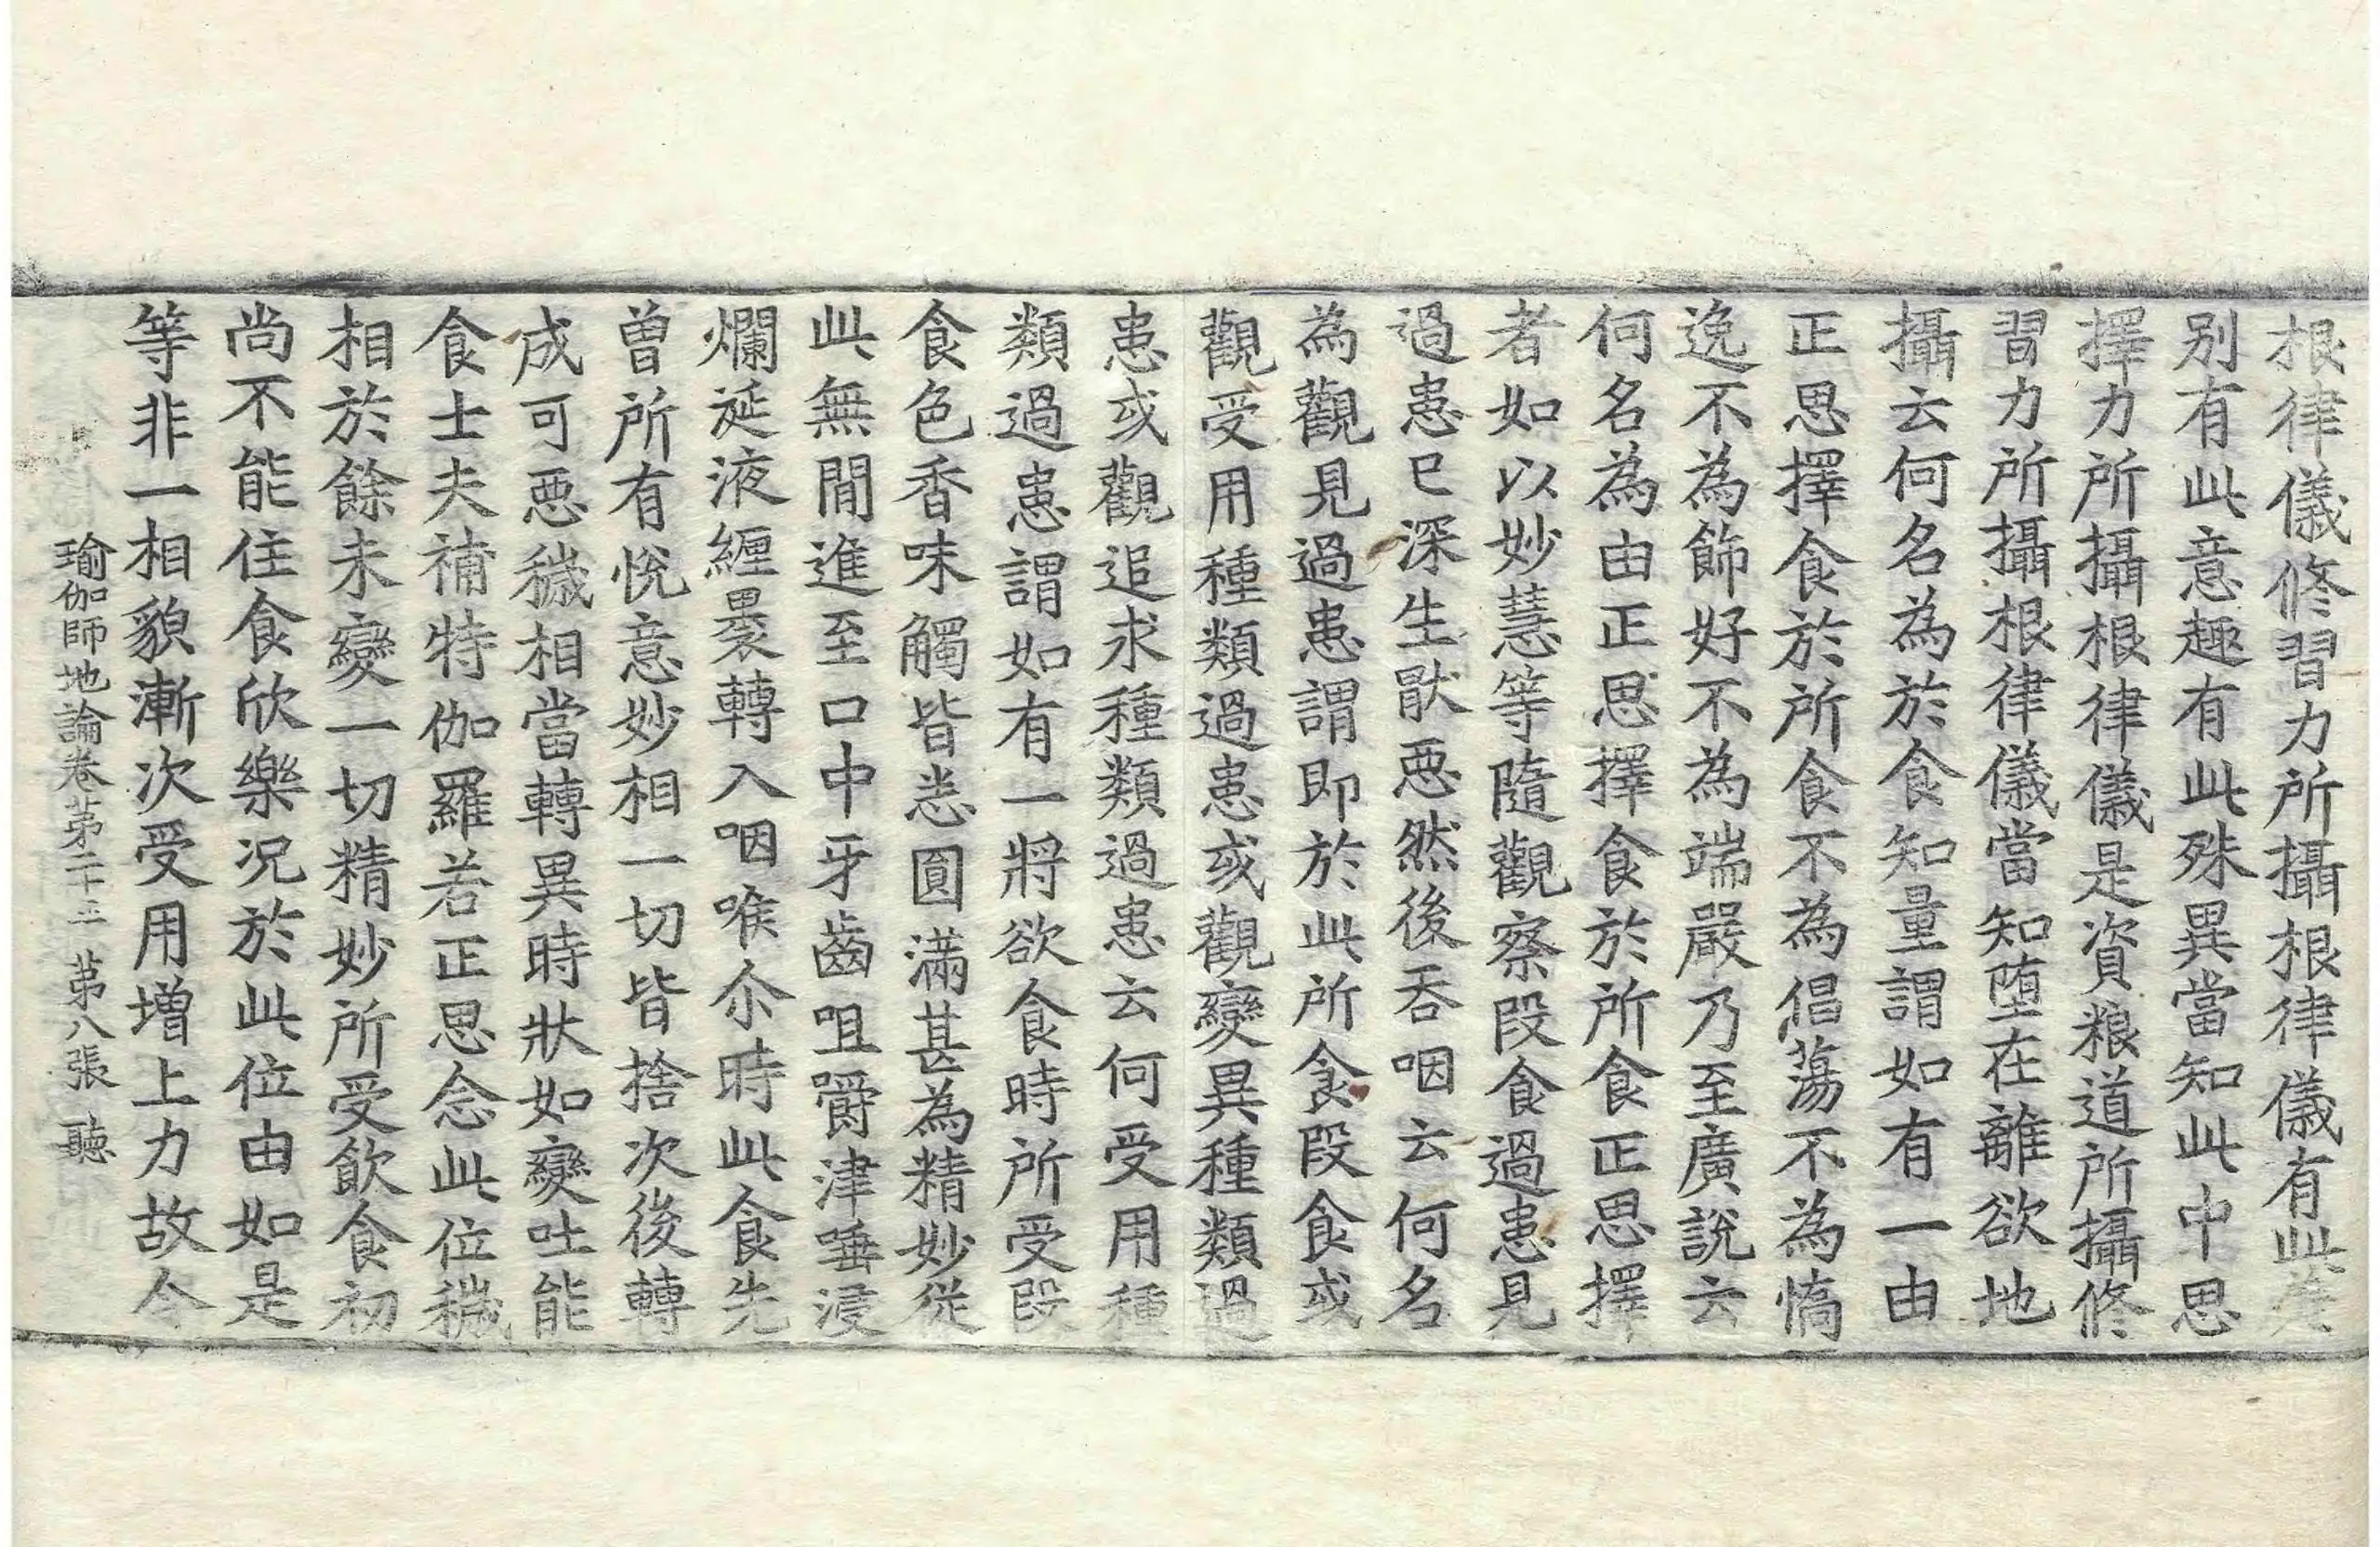 根律儀修習力所攝根律儀有此差
别有此意趣有此殊異當知此中思
擇力所攝根律儀是資粮道所攝修
習力所攝根律儀當知墮在離欲地
攝云何名為於食知量謂如有一由
正思擇食於所食不為倡蕩不為憍
逸不為飾好不為端嚴乃至廣說云
何名為由正思擇食於所食正思擇
者如以妙慧等隨觀察段食過患見
過患已深生猒惡然後吞咽云何名
為觀見過患謂即於此所食段食或
觀受用種類過患或觀變異種類過
患或觀追求種類過患云何受用種
類過患謂如有一將欲食時所受段
食色香味觸皆悉圓滿甚為精妙從
此無間進至口中牙齒咀嚼津唾浸
爛涎液纏褁轉入咽喉尒時此食先
曾所有悅意妙相一切皆捨次後轉
成可惡穢相當轉異時狀如變吐能
食士夫補特伽羅若正思念此位穢
相於餘未變一切精妙所受飲食初
尚不能住食欣樂况於此位由如是
等非一相貌漸次受用增上力故令
瑜伽師地論卷苐二十三 苐八張 聽